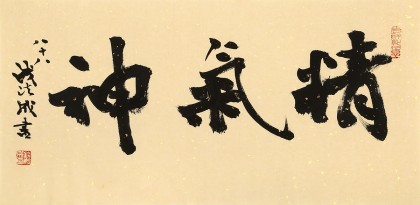 精氣神
八十八
成书